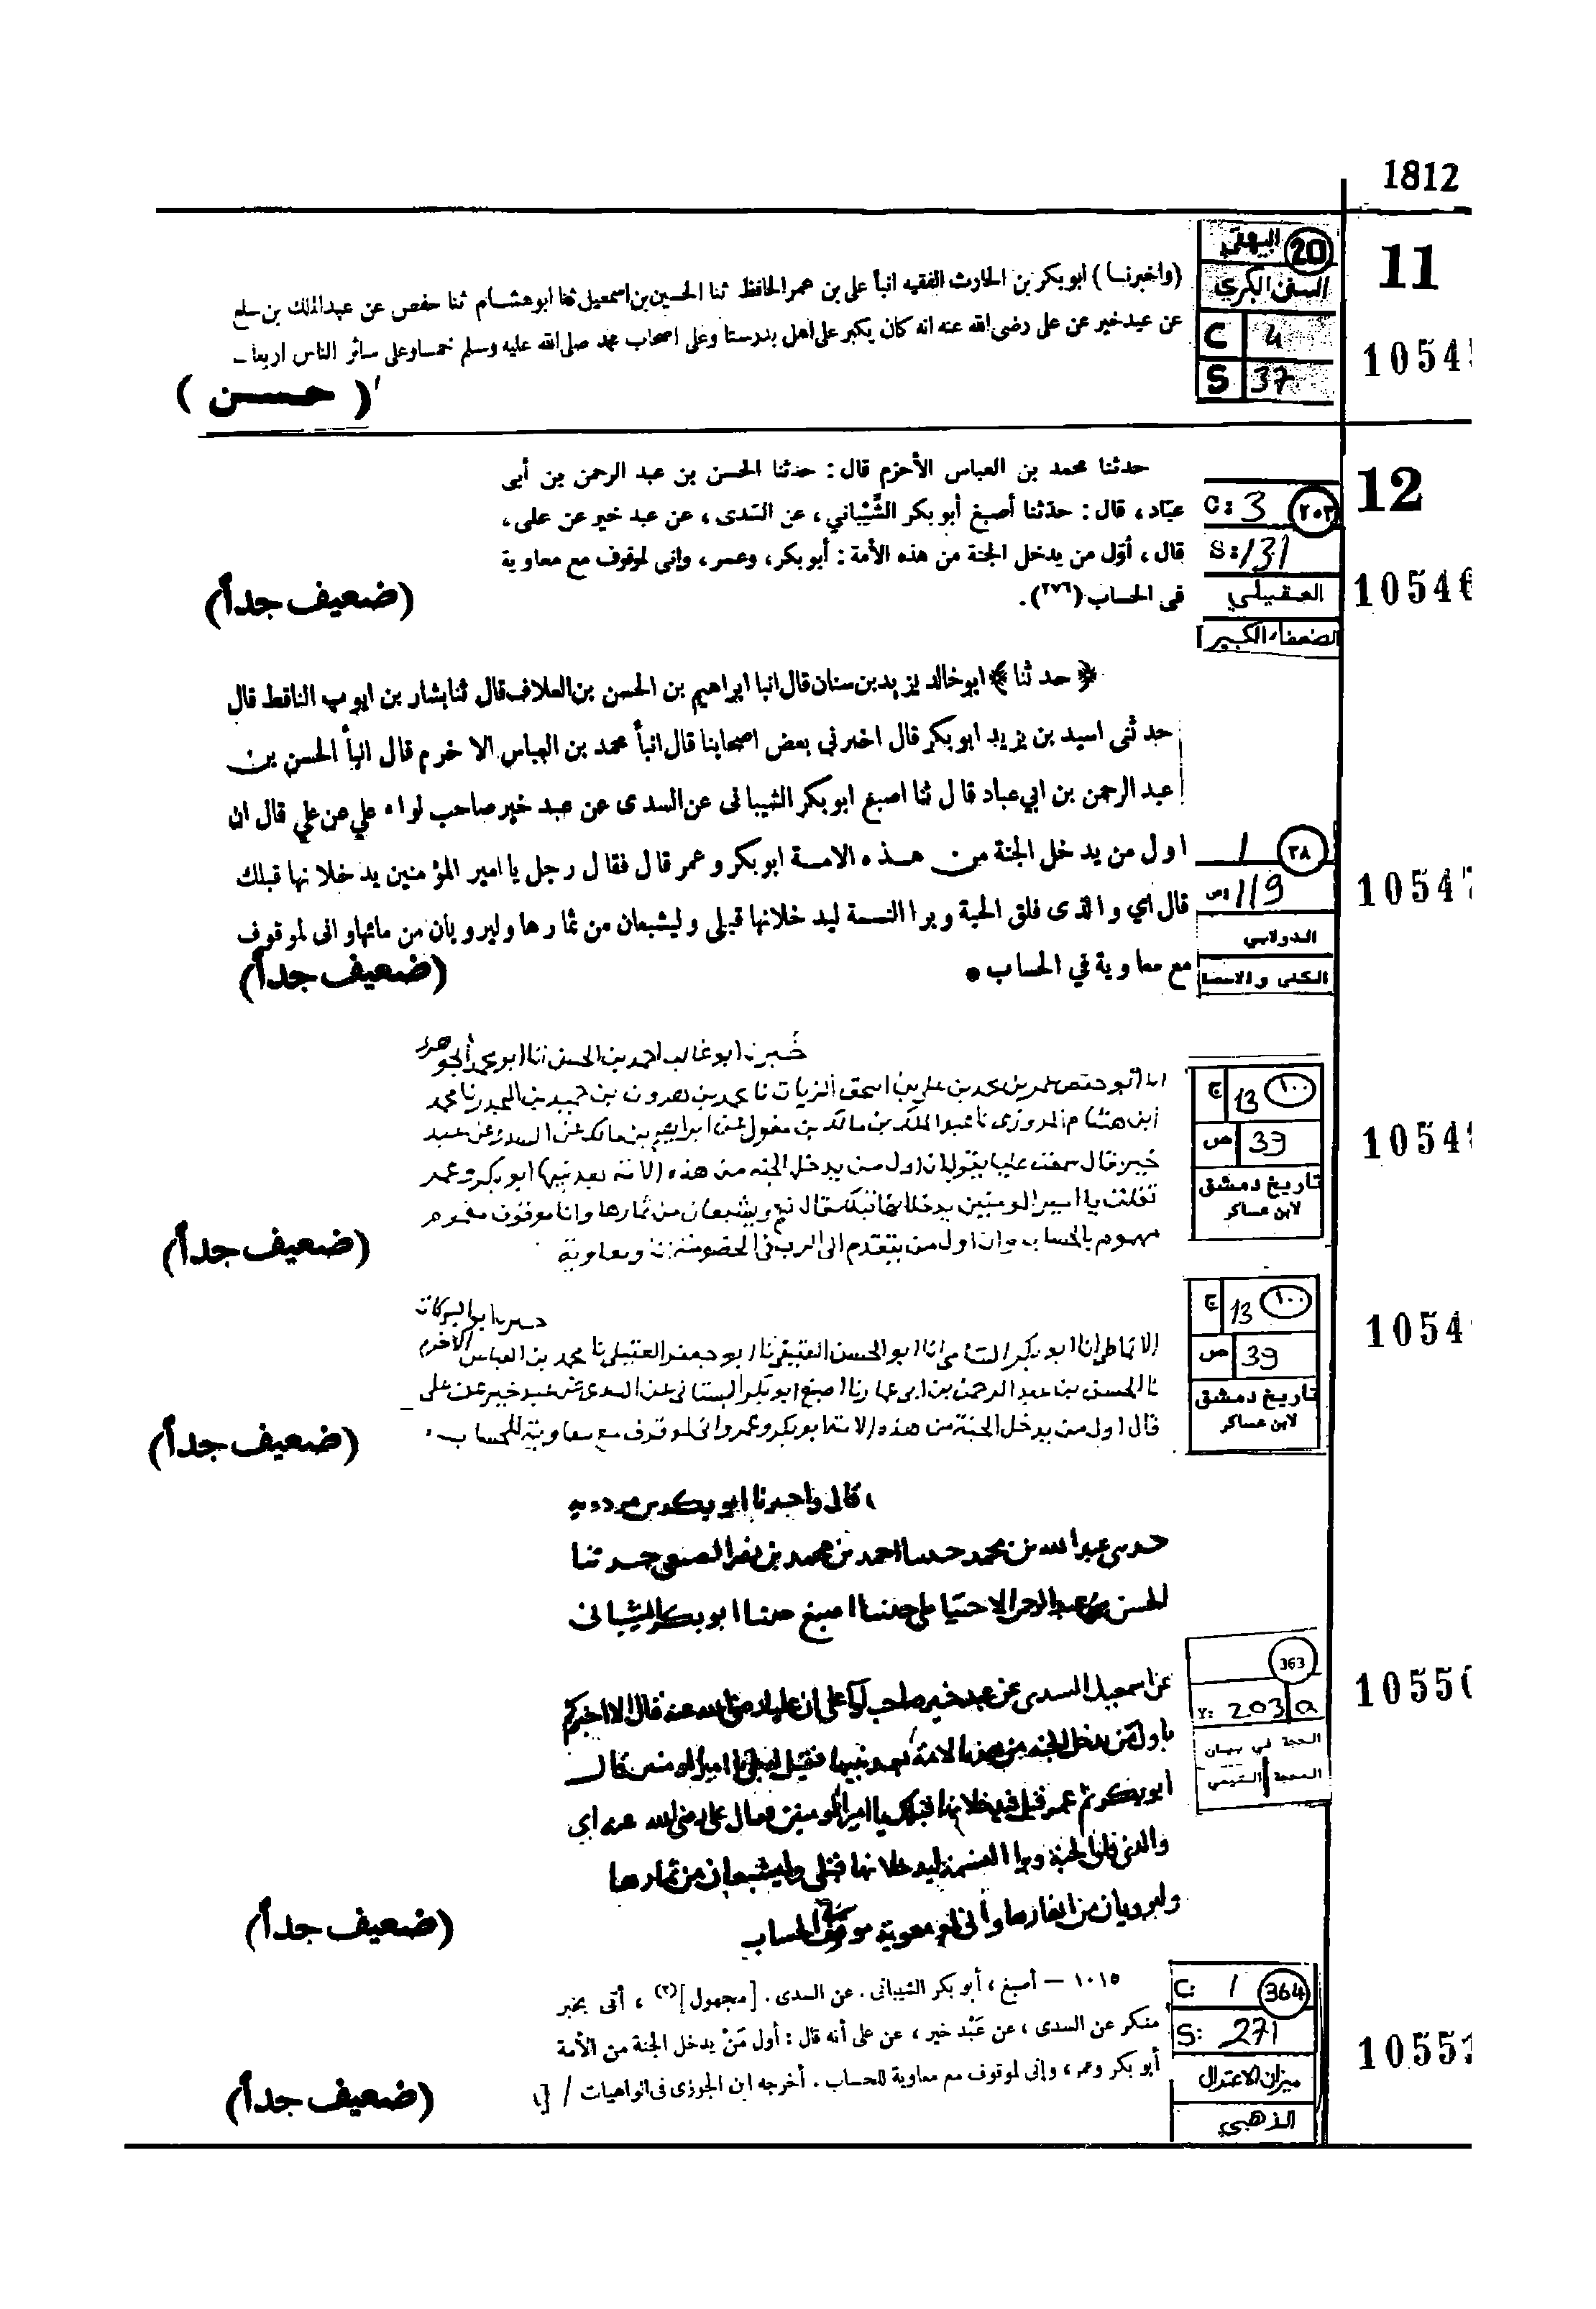 1812
11
20 البيهقي
السنن الكبرى
C 4
S 37
1054
(واخبرنا) ابوبكر بن الحارث الفقيه انبأ على بن عمر الحافظ ثنا الحسين بن اسمعيل ثنا ابو هشام ثنا حفص عن عبد الملك بن سلع
عن عبد خير عن على رضى الله عنه انه كان يكبر على اهل بدر ستا وعلى اصحاب محمد صلى الله عليه وسلم خمسا وعلى سائر الناس اربعا -
( حسن )
12
C: 3 ٢٠٣
S: 131
العقيلي
الضعفاء الكبير
10546
حدثنا محمد بن العباس الأخرم قال : حدثنا الحسن بن عبد الرحمن بن أبى
عبّاد ، قال : حدّثنا أصبغ أبو بكر الشَّيْباني ، عن السّدى ، عن عبد خير عن على ،
قال ، أوّل من يدخل الجنة من هذه الأمة : أبو بكر ، وعمر ، وإنى لموقوف مع معاوية
فى الحساب (٢٧٦) .
(ضعيف جداً)
﴿ حد ثنا ﴾ ابو خالد يزيد بن سنان قال انبا ابراهيم بن الحسن بن العلاف قال ثنا بشار بن ايوب الناقط قال
حد ثنى اسيد بن يزيد ابو بكر قال اخبرني بعض اصحابنا قال انبأ محمد بن العباس الا خرم قال انبأ الحسن بن
عبد الرحمن بن ابي عباد قال ثنا اصبغ ابو بكر الشيبانى عن السدى عن عبد خير صاحب لواء علي عن علي قال ان
اول من يدخل الجنة من هذه الامة ابو بكر وعمر قال فقال رجل يا امير المؤمنين يدخلانها قبلك
قال اي والذى فلق الحبة وبرا النسمة ليدخلانها قبلى وليشبعان من ثمارها وليرويان من مائها وانى لموقوف
مع معاوية في الحساب •
1 ٣٨
ص 119
الدولابي
الكنى والاسما
10547
(ضعيف جداً)
ابو غالب احمد بن الحسن انا ابو محمد الجوهرى
انا ابو حفص عمر بن محمد بن علي بن اسحق الزيات نا محمد بن هرون بن حميد بن المجدر نا محمد
ابن هشام المروزى نا عبد الملك بن مالك بن مغول عن ابراهيم بن مالك عن السدى عن عبد
خير قال سمعت عليا يقول ان اول من يدخل الجنه من هذه الامة بعد نبيها ابو بكر وعمر
فقلت يا امير المومنين يدخلانها قبلك قال نعم ويشبعان من ثمارها وانا موقوف مغموم
مهموم بالحساب وان اول من يتقدم الى الرب فى الخصومة انا ومعاوية
ج 13 ١٠٠
ص 39
تاريخ دمشق
لابن عساكر
1054
(ضعيف جداً)
ابو البركات
الانماطى انا ابو بكر الشامى انا ابو الحسن العتيقى نا ابو جعفر العقيلى نا محمد بن العباس الاخرم
نا الحسن بن عبد الرحمن بن ابى عباد نا اصبغ ابو بكر عن السدى عن عبد خير عن على
قال اول من يدخل الجنة من هذه الامة ابو بكر وعمر وانى لموقوف مع معاوية للحساب
ج 13 ١٠٠
ص 39
تاريخ دمشق
لابن عساكر
1054
(ضعيف جداً)
قال واخبرنا ابو بكر بن مردويه
عبد الله بن محمد احمد بن محمد بن نصر حدثنا
الحسن بن عبد الرحمن حدثنا اصبغ حدثنا ابو بكر الشيبانى
عن اسمعيل السدى عن عبد خير صاحب لواء على ان عليا رضى الله عنه قال الا اخبركم
باول من يدخل الجنه من هذه الامة بعد نبيها فقيل له بلى يا امير المومنين قال
ابو بكر ثم عمر قيل فيدخلانها قبلك يا امير المومنين فقال على رضى الله عنه اى
والذى فلق الحبة وبرا النسمة ليدخلانها قبلى وليشبعان من ثمارها
وليرويان من انهارها وانى لمع معوية موقوف الحساب
363
Y: 203 a
الحجة في بيان
المحجة التيمي
10550
(ضعيف جداً)
١٠١٥ – أصبغ ، أبو بكر الشيبانى . عن السدى . [ مجهول ] (٢) ، أتى بخبر
منكر عن السدى ، عن عَبْد خير ، عن على أنه قال : أول مَنْ يدخل الجنة من الأمة
أبو بكر وعمر ، وإنى لموقوف مع معاوية للحساب . أخرجه ابن الجوزى فى الواهيات /
C: 1 364
S: 271
ميزان الاعتدال
الذهبي
1055
(ضعيف جداً)